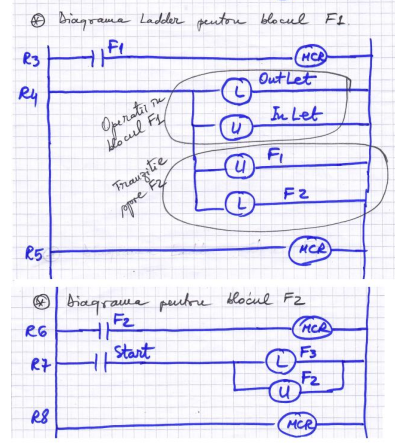 ⊛ Diagrama Ladder pentru blocul F1.
R3 F1 MCR
R4 L OutLet
Operatii in
blocul F1
U InLet
Tranzitie
spre F2
U F1
L F2
R5 MCR
⊛ Diagrama pentru blocul F2
R6 F2 MCR
R7 Start L F3
U F2
R8 MCR